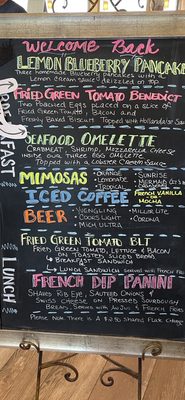 Welcome Back
Lemon Blueberry Pancake
Three homemade Blueberry pancakes with a
Lemon cream sauce drizzled on top
Fried Green Tomato Benedict
Two Poached Eggs placed on a slice of
Fried Green Tomato, Bacon and
Freshly Baked Biscuit Topped with Hollandaise Sau
Seafood Omelette
Crabmeat, Shrimp, Mozzarella Cheese
inside our three egg omelette
Topped with a Lobster Cream Sauce
Mimosas
Orange
Lemonade
Tropical
Sunrise
Mermaid
Iced Coffee
French Vanilla
Mocha
Beer
Yuengling
Coors Light
Mich Ultra
Miller Lite
Corona
Fried Green Tomato BLT
Fried Green Tomato, Lettuce & Bacon
on Toasted Sliced Bread
Breakfast Sandwich
Lunch Sandwich Served with French Fri
French Dip Panini
Shaved Rib Eye, Sauteed Onions &
Swiss Cheese on Pressed Sourdough
Bread. Served with Au Jus & French Fries
Please Note There is a $2.50 Share Plate Charge
FAST
LUNCH